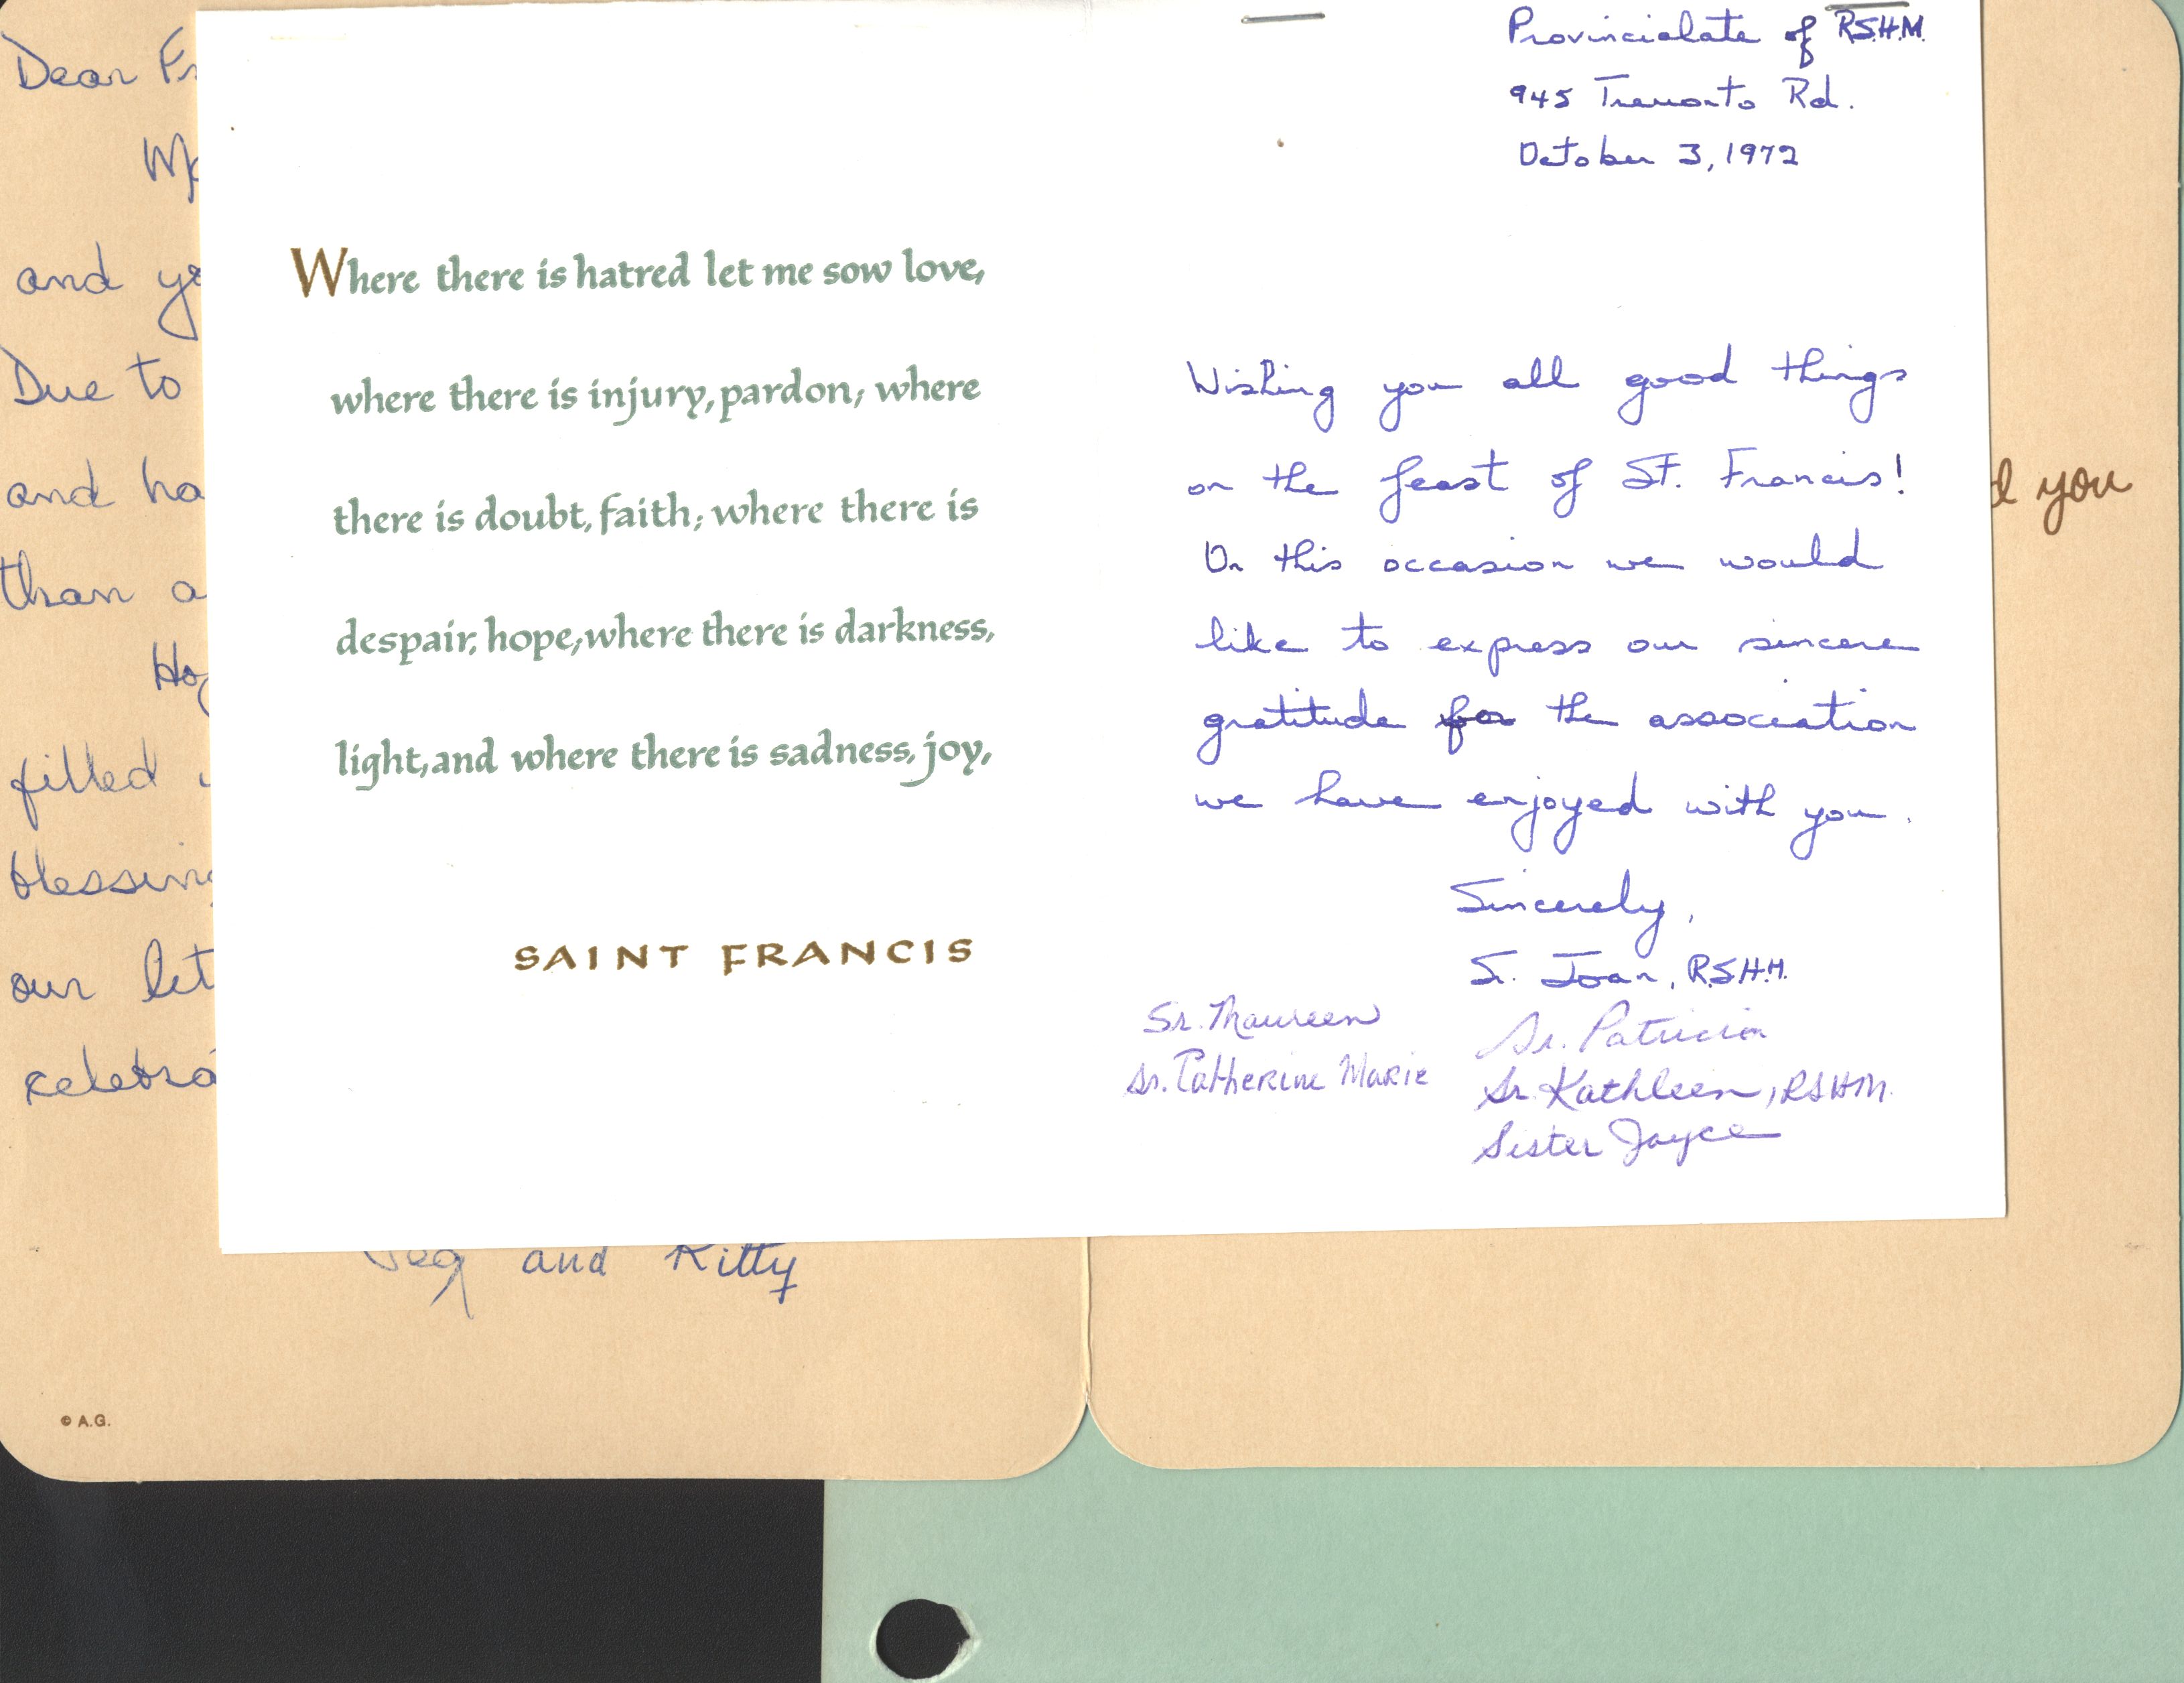 Dear
and
Due to
and
than a
filled
our
© A.G.
and Kitty
you
Where there is hatred let me sow love,
where there is injury, pardon; where
there is doubt, faith; where there is
despair, hope, where there is darkness,
light, and where there is sadness, joy,
SAINT FRANCIS
Provincialate of R.S.H.M.
945 Tremonto Rd.
October 3, 1972
Wishing you all good things
on the feast of St. Francis!
On this occasion we would
like to express our sincere
gratitude for the association
we have enjoyed with you.
Sincerely,
Sr. Joan, R.S.H.M.
Sr. Maureen
Sr. Patricia
Sr. Catherine Marie
Sr. Kathleen, RSHM.
Sister Joyce